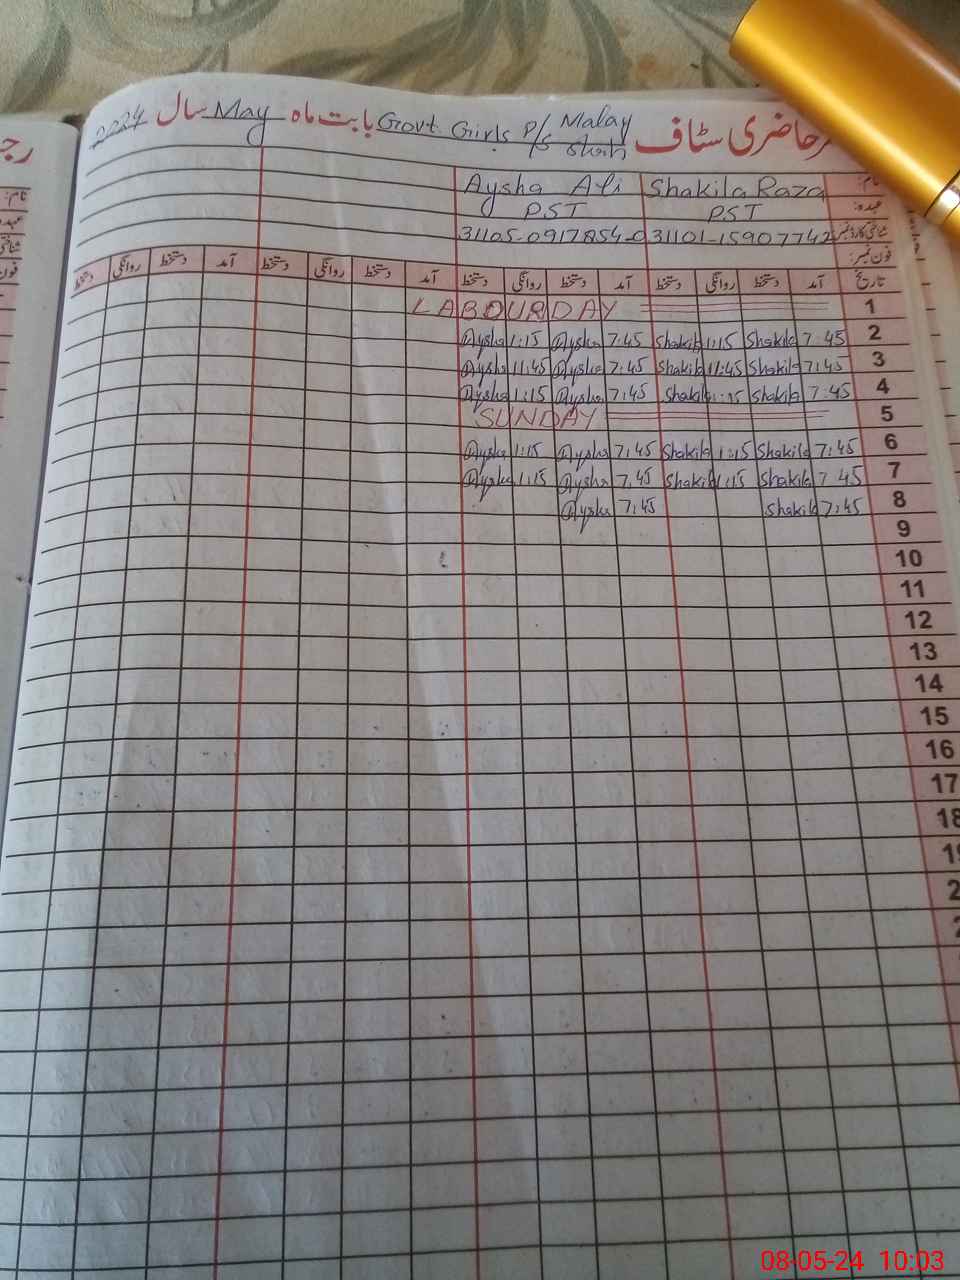 رجـ
حاضری سٹاف Govt. Girls P/S Malay Shah بابت ماہ May سال 2024
نام: Shakila Raza Aysha Ali
عہدہ: PST PST
شناختی کارڈ نمبر 31101-15907742 31105-0917854-0
فون نمبر:
تاریخ آمد دستخط روانگی دستخط آمد دستخط روانگی دستخط آمد دستخط روانگی دستخط آمد دستخط روانگی دستخط
1 LABOUR DAY
2 7:45 Shakila 1:15 Shakila 7:45 Aysha 1:15 Aysha
3 7:45 Shakila 11:45 Shakila 7:45 Aysha 11:45 Aysha
4 7:45 Shakila 1:15 Shakila 7:45 Aysha 1:15 Aysha
5 SUNDAY
6 7:45 Shakila 1:15 Shakila 7:45 Aysha 1:15 Aysha
7 7:45 Shakila 1:15 Shakila 7:45 Aysha 1:15 Aysha
8 7:45 Shakila 7:45 Aysha
9
10
11
12
13
14
15
16
17
18
08-05-24 10:03